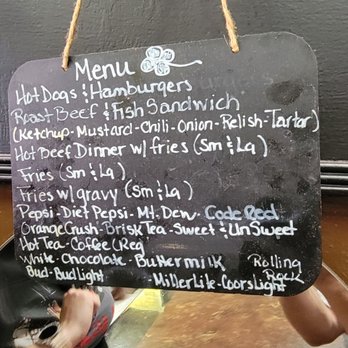 Menu
Hot Dogs & Hamburgers
Roast Beef & Fish Sandwich
(Ketchup-Mustard-Chili-Onion-Relish-Tartar)
Hot Beef Dinner w/ fries (Sm & La)
Fries (Sm & La)
Fries w/ gravy (Sm & La)
Pepsi-Diet Pepsi-Mt. Dew Code Red
Orange Crush-Brisk Tea-Sweet & UnSweet
Hot Tea-Coffee (Reg)
White-Chocolate-Buttermilk Rolling Rock
Bud-Bud Light -Miller Lite-Coors Light